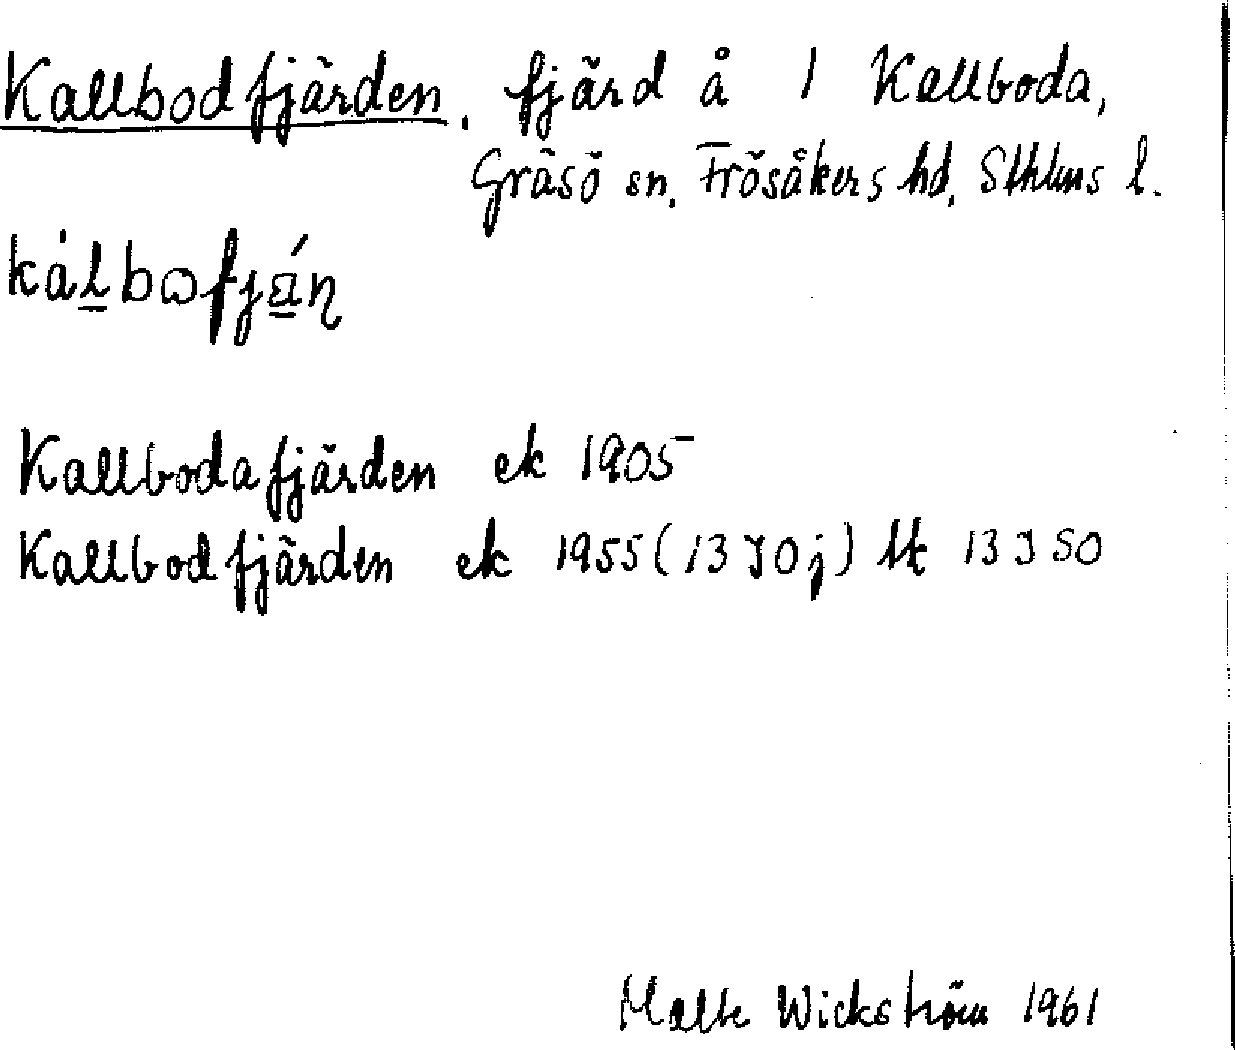 Kallbodfjärden. fjärd å 1 Kallboda,
Gräsö sn. Frösåkers hd. Sthlms l.
kálbofjǽn
Kallbodafjärden ek 1905
Kallbodfjärden ek 1955 (13 J 0j) tk 13 J SO
Malte Wickström 1961